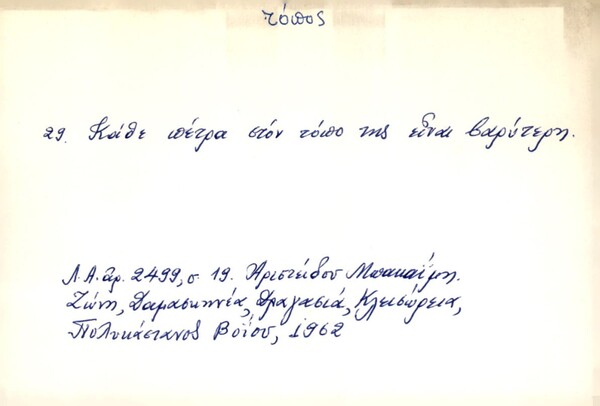 τόπος
29. Κάθε πέτρα στόν τόπο της εἶναι βαρύτερη.
Λ.Α. ἀρ. 2499, σ. 19. Ἀριστείδου Μπακαΐμη.
Ζώνη, Δαμασκηνέα, Δραγασιά, Κλεισώρεια,
Πολυκάστανος Βοΐου, 1962